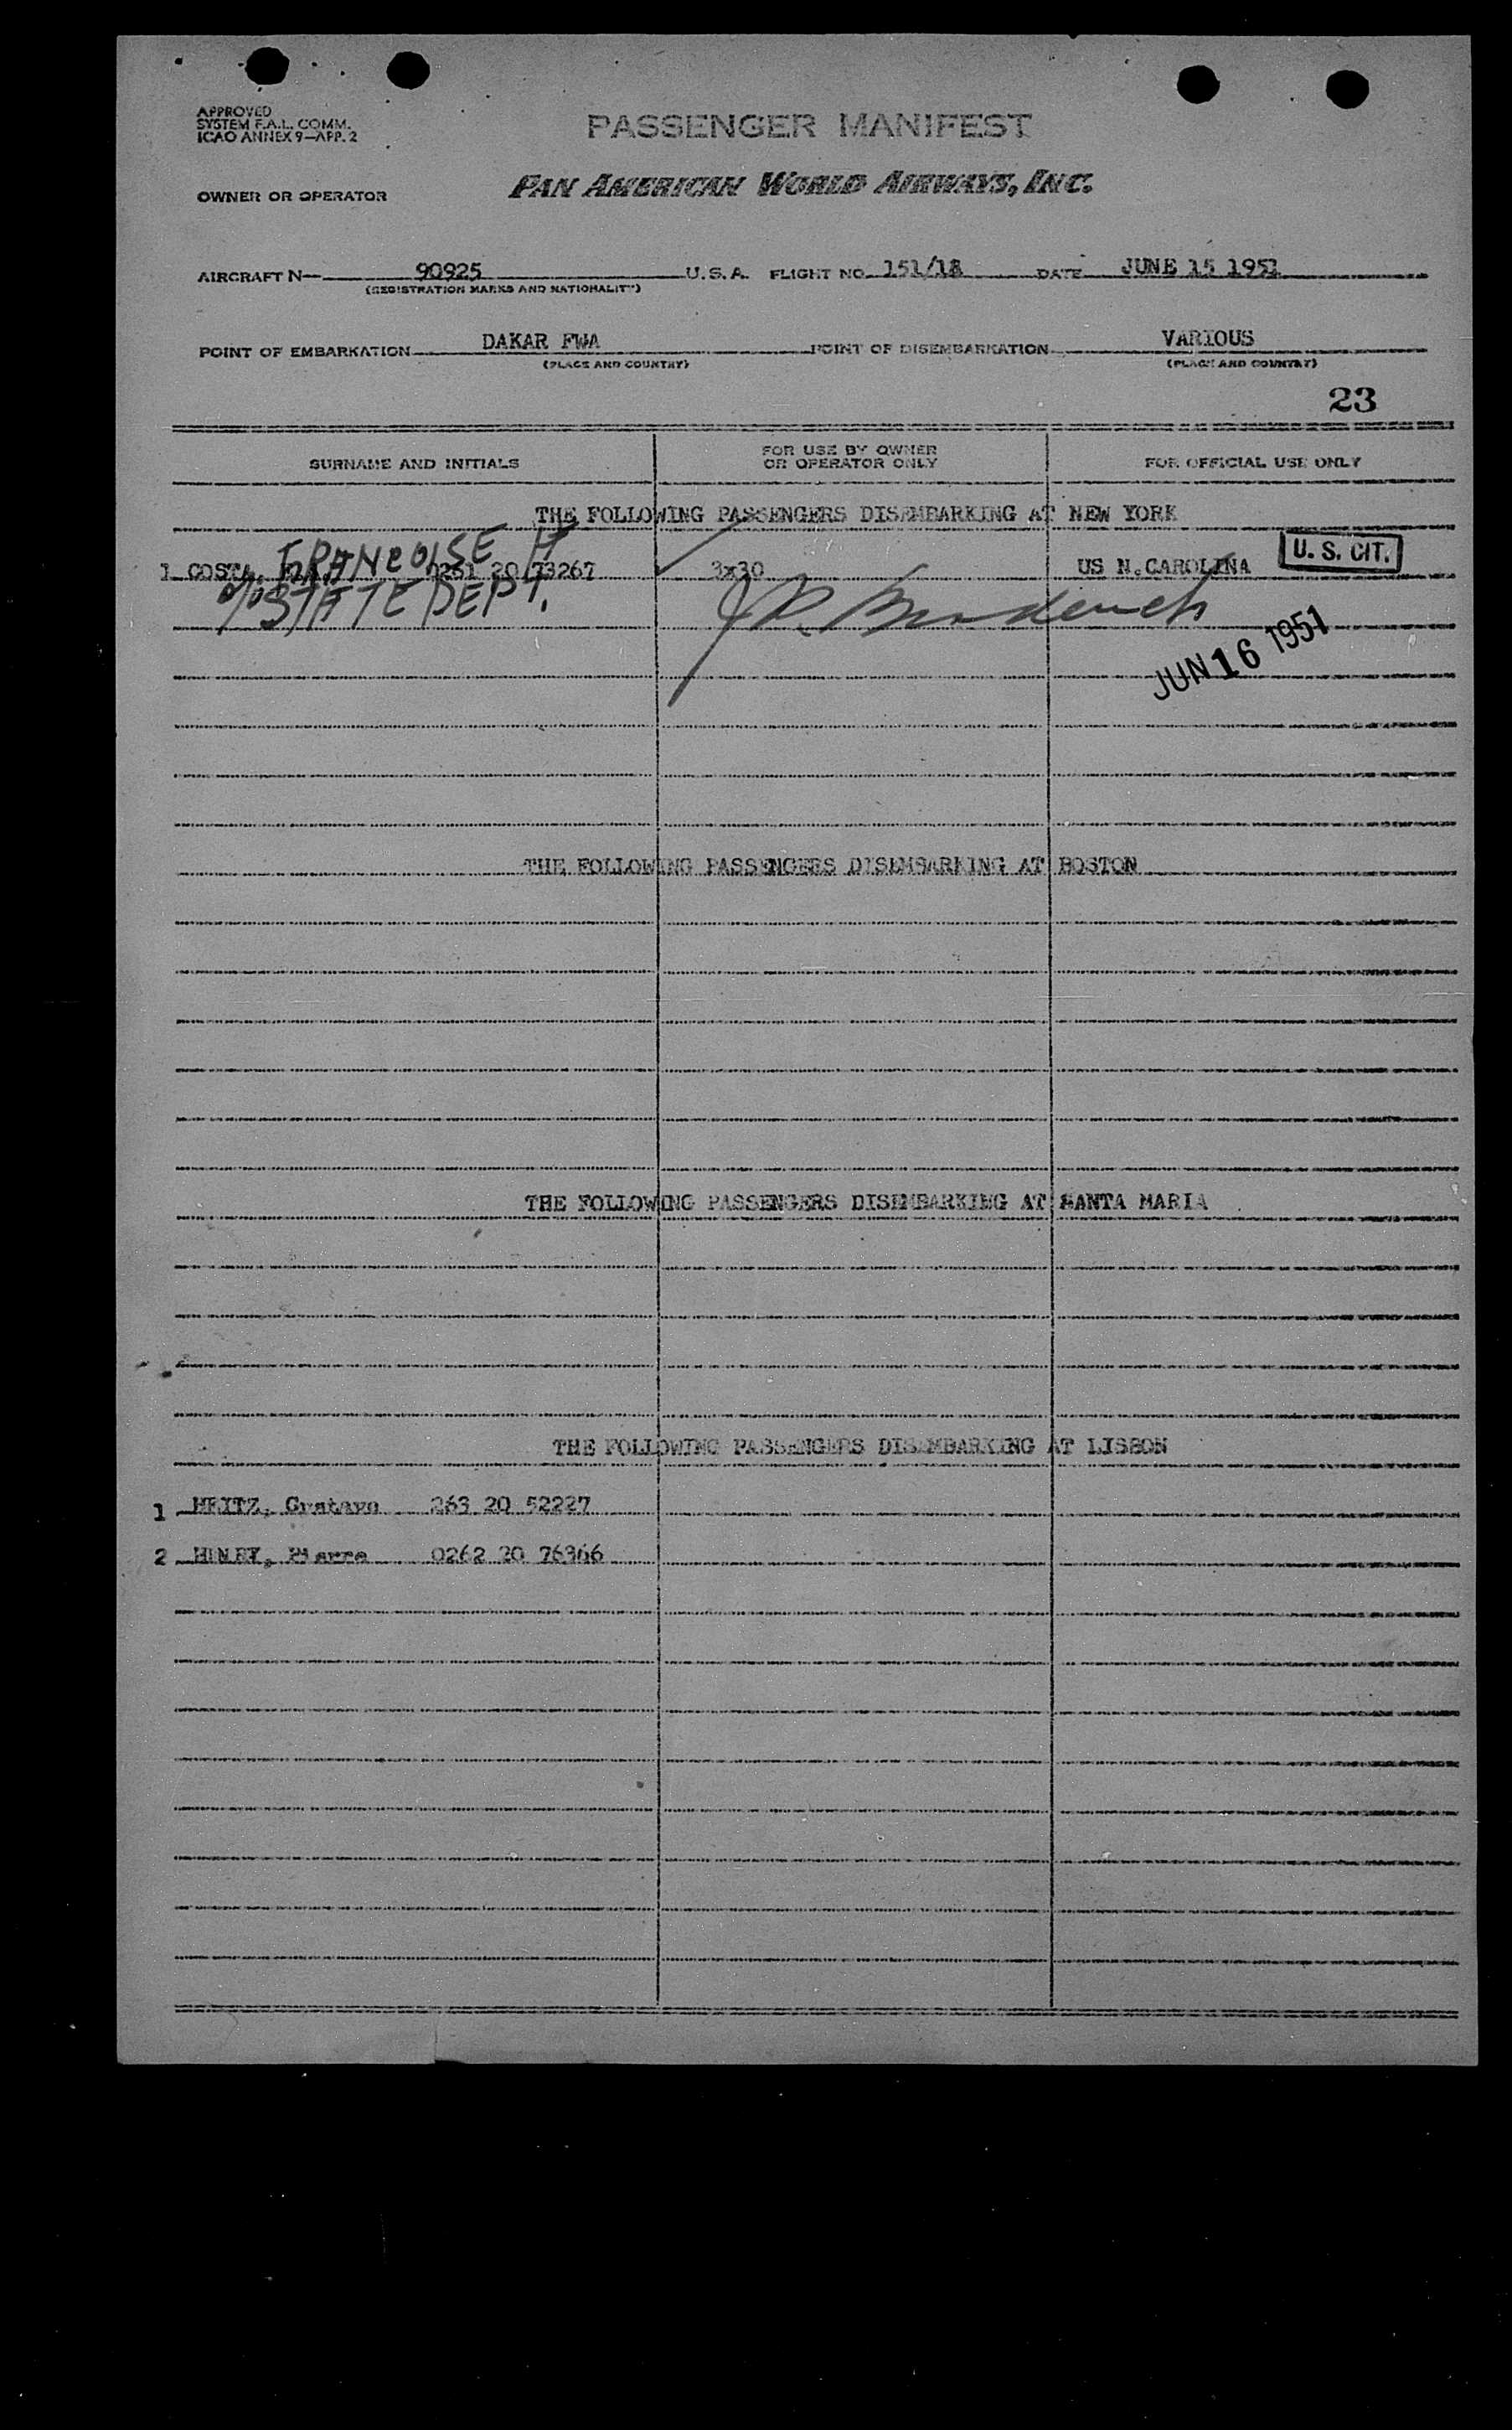 APPROVED
SYSTEM F.A.L. COMM.
ICAO ANNEX 9—APP. 2
PASSENGER MANIFEST
OWNER OR OPERATOR PAN AMERICAN WORLD AIRWAYS, INC.
AIRCRAFT N— 90925 U.S.A. FLIGHT NO. 151/18 DATE JUNE 15 1951
(REGISTRATION MARKS AND NATIONALITY)
POINT OF EMBARKATION DAKAR FWA POINT OF DISEMBARKATION VARIOUS
(PLACE AND COUNTRY) (PLACE AND COUNTRY)
23
SURNAME AND INITIALS FOR USE BY OWNER OR OPERATOR ONLY FOR OFFICIAL USE ONLY
THE FOLLOWING PASSENGERS DISEMBARKING AT NEW YORK
1 COSTA, FRANCOISE H 0251 20 73267 3x30 US N.CAROLINA U. S. CIT.
c/o STATE DEPT.
JUN 16 1951
THE FOLLOWING PASSENGERS DISEMBARKING AT BOSTON
THE FOLLOWING PASSENGERS DISEMBARKING AT SANTA MARIA
THE FOLLOWING PASSENGERS DISEMBARKING AT LISBON
1 Gustavo 263 20 52227
2 Pierre 0262 20 76366